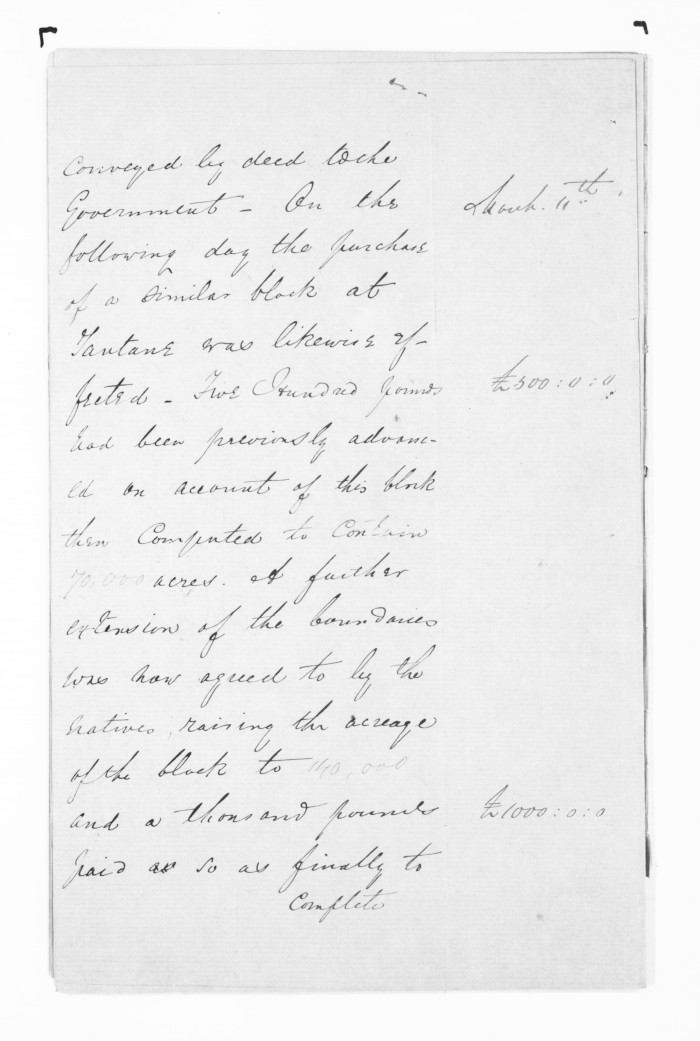 conveyed by deed to the
Government – On the
March. 11th
following day the purchase
of a similar block at
Tautane was likewise ef-
fected – Five Hundred pounds
£500:0:0
had been previously advanc-
ed on account of this block
then computed to contain
70,000 acres. A further
extension of the boundaries
was now agreed to by the
natives, raising the acreage
of the block to 140,000
and a thousand pounds
£1000:0:0
paid so as finally to
complete